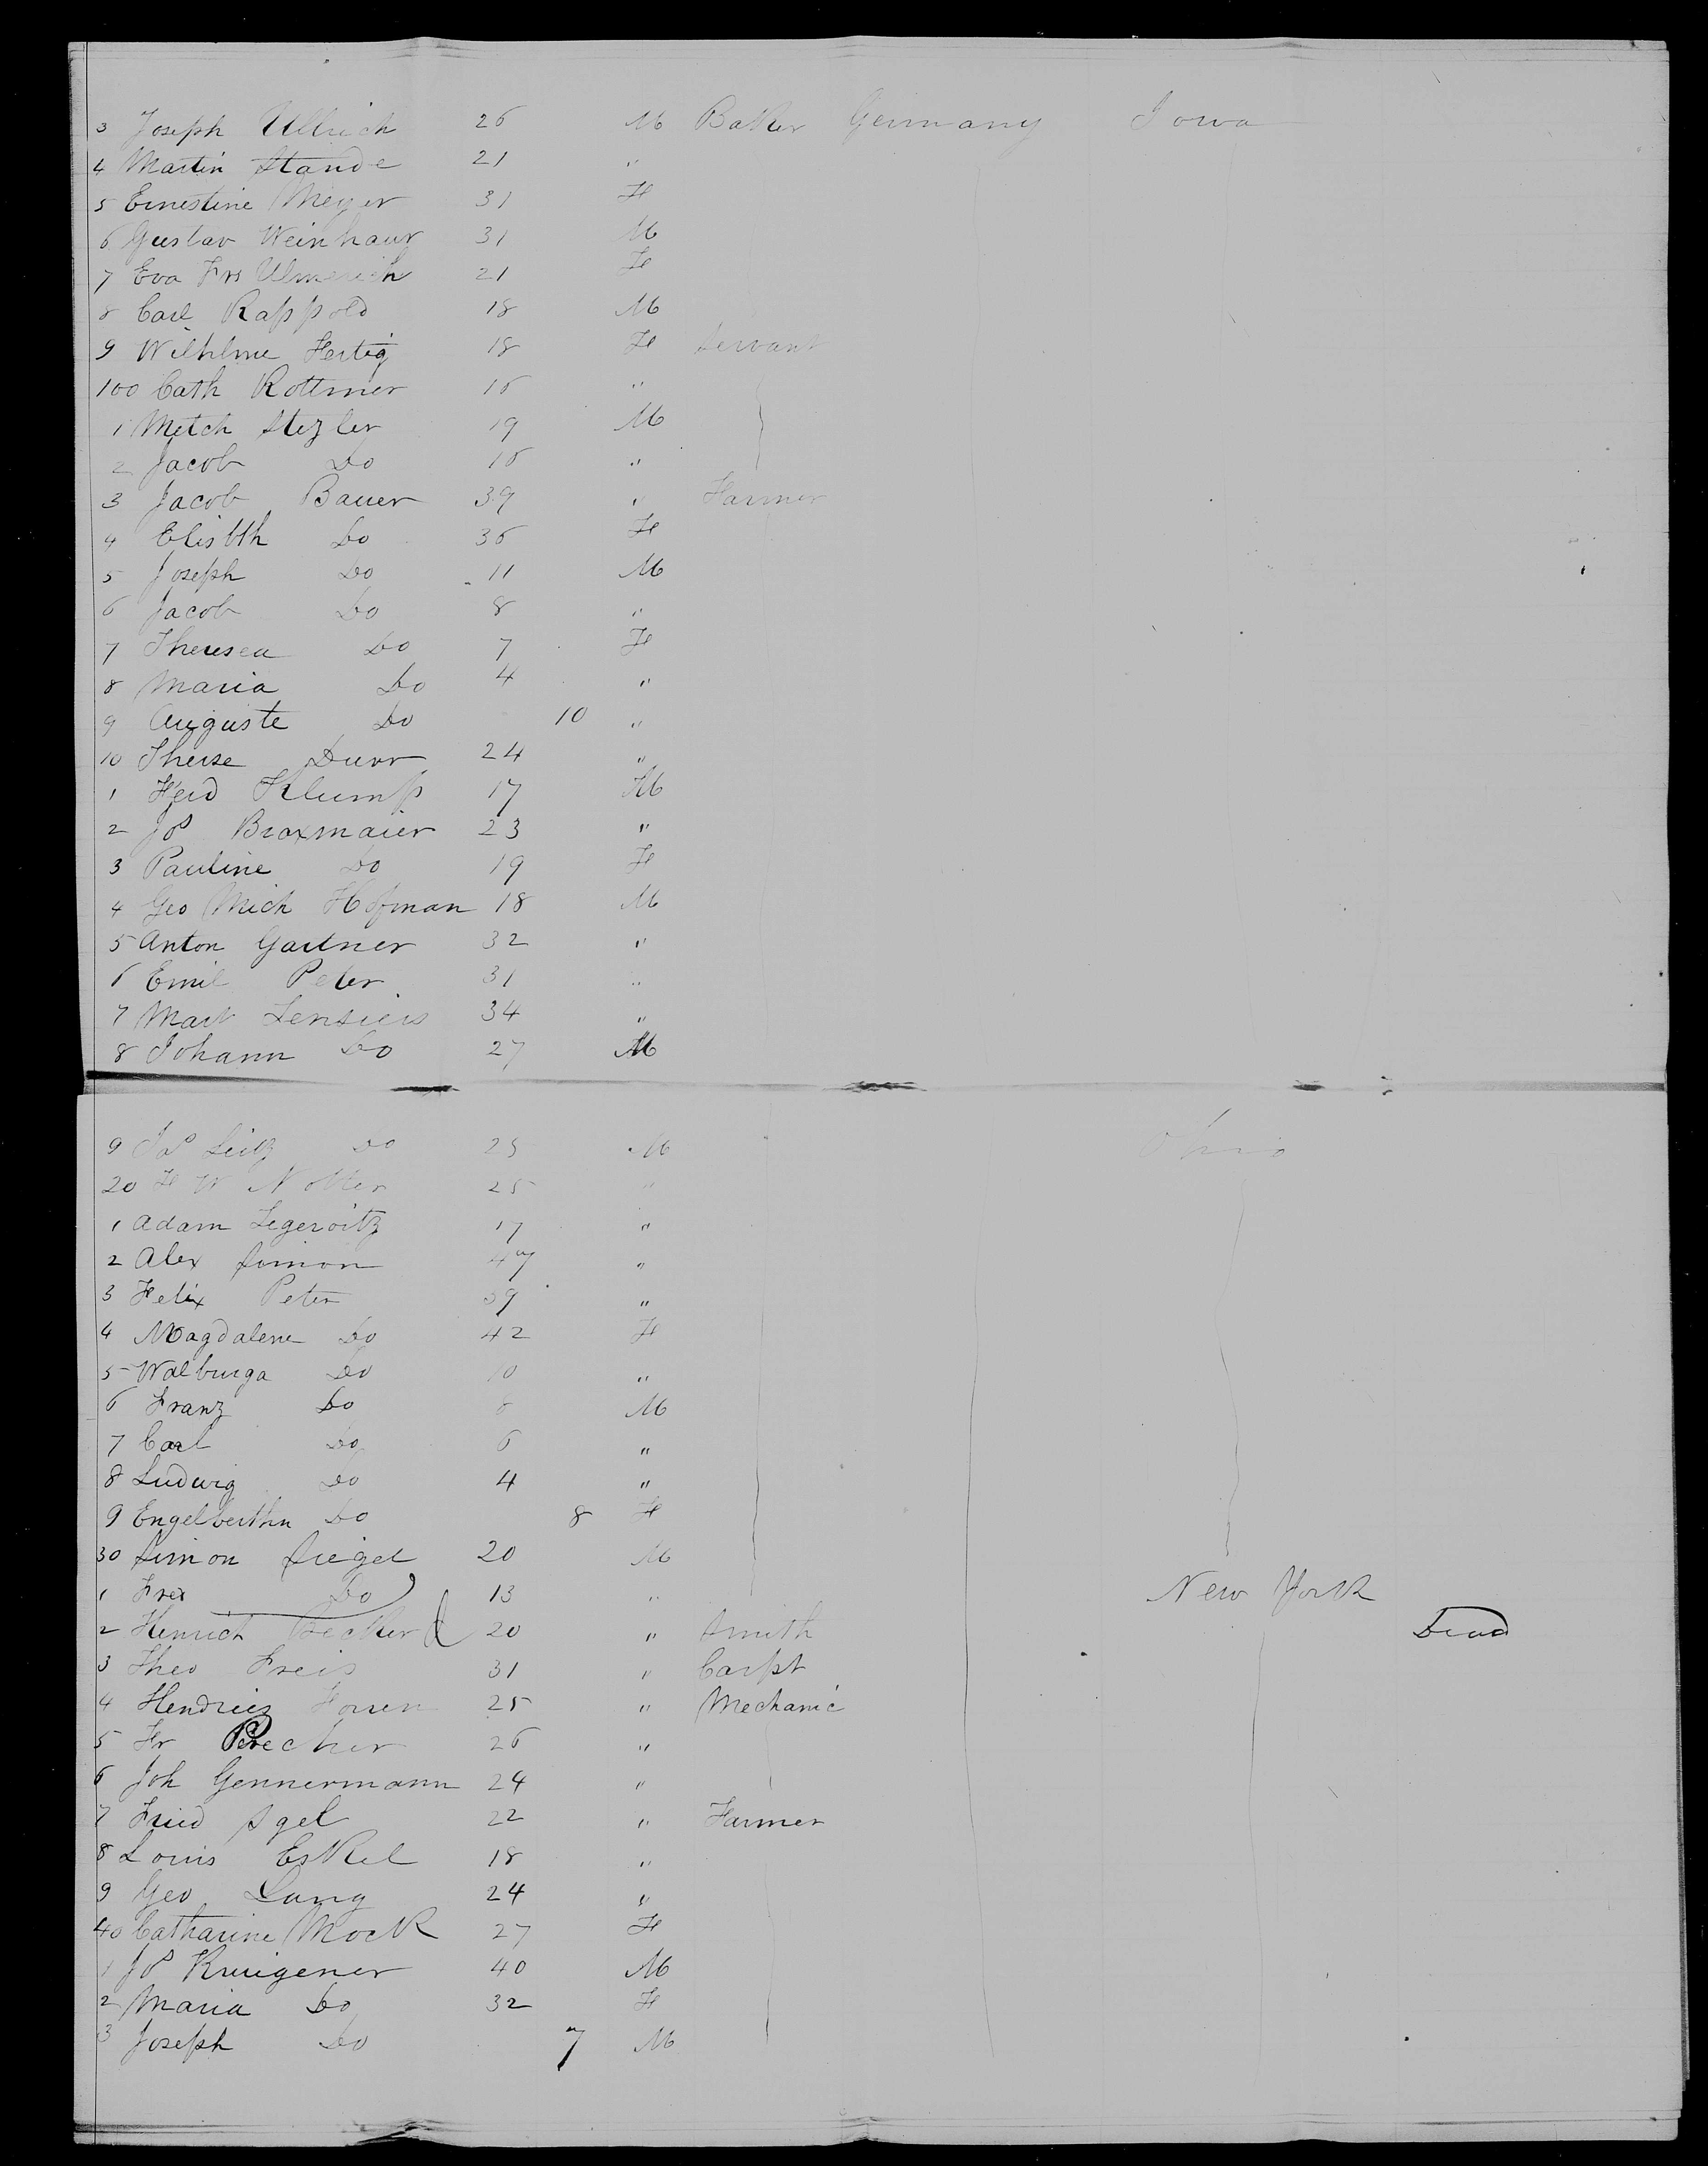 3 Joseph Ullrich 26 M Baker Germany Iowa
4 Martin Stande 21 "
5 Ernestine Meyer 31 F
6 Gustav Weinhaur 31 M
7 Eva Frs Ulmerich 21 F
8 Carl Rappold 18 M
9 Wilhlme Hertig 18 F Servant
100 Cath Rottmer 16 "
1 Metch Stezler 19 M
2 Jacob Do 16 "
3 Jacob Bauer 39 " Farmer
4 Elisbth Do 36 F
5 Joseph Do 11 M
6 Jacob Do 8 "
7 Theresea Do 7 F
8 Maria Do 4 "
9 Auguste Do 10 "
10 Therse Durr 24 "
1 Ferd Klump 17 M
2 Jos Braxmaier 23 "
3 Pauline Do 19 F
4 Geo Mich Hofman 18 M
5 Anton Gartner 32 "
6 Emil Peter 31 "
7 Mart 34 "
8 Johann Do 27 M
9 Do 25 M Ohio
20 F W Notter 25 "
1 Adam Legeroitz 17 "
2 Alex Simon 47 "
3 Felix Peter 39 "
4 Magdalene Do 42 F
5 Walburga Do 10 "
6 Franz Do 8 M
7 Carl Do 6 "
8 Ludwig Do 4 "
9 Engelberthn Do 8 F
30 Simon Siegel 20 M
1 Fred Do 13 " New York
2 Henrich Becker 20 " Smith Dead
3 Theo Freis 31 " Carpt
4 25 " Mechanic
5 Fr 26 "
6 Joh Gennermann 24 "
7 Fried Sgel 22 " Farmer
8 Louis Eskel 18 "
9 Geo Lang 24 "
40 Catharine Mock 27 F
1 Jos Kruigener 40 M
2 Maria Do 32 F
3 Joseph Do 7 M